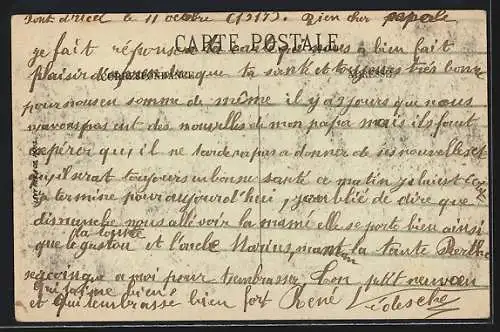 Pont d'Ucel le 11 octobre (1917). Bien cher
CARTE POSTALE
je fait réponse à ta carte qui nous a bien fait
plaisir d'apprendre que ta santé et toujours très bonne
CORRESPONDANCE ADRESSE
pour nous en somme de même il y a 8 jours que nous
navons pas eut des nouvelles de mon papa mais ils faut
espérer qu, il ne tardera pas a donner de ses nouvelles et
qu, il serat toujours en bonne santé ce matin je lui est
je termine pour aujourd'hui, j'ai oublié de dire que
dimanche nous allé voir la mamé elle se porte bien ainsi
la toute
que le gaston et l'oncle Marius, maman la tante Berthe
se joingne a moi pour t'embrasser. Ton petit neuveu
qui t'aime bien
et qui t'embrasse bien fort René